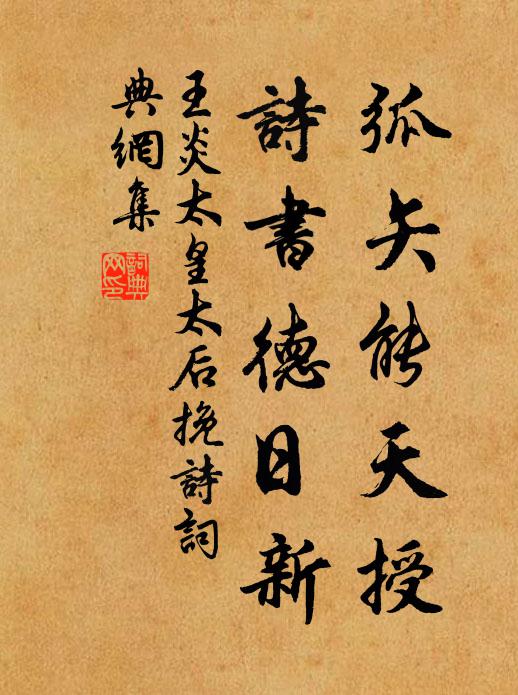 弧矢能天授
詩書德日新
王炎太皇太后挽詩詞
典網集
詞典
网印